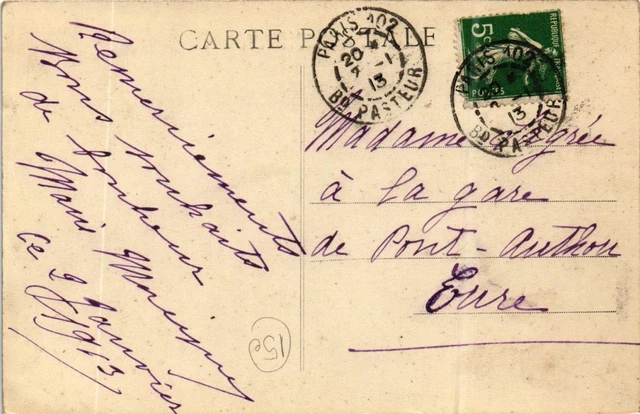 CARTE POSTALE
PARIS 102
20
4 -1
13
Bd PASTEUR
5c
POSTES
PARIS 102
13
Bd PASTEUR
Remerciements
Bons souhaits
de bonheur
Marie
Ce 2 Janvier
1913
Madame
à la gare
de Pont-Authou
Eure
15e